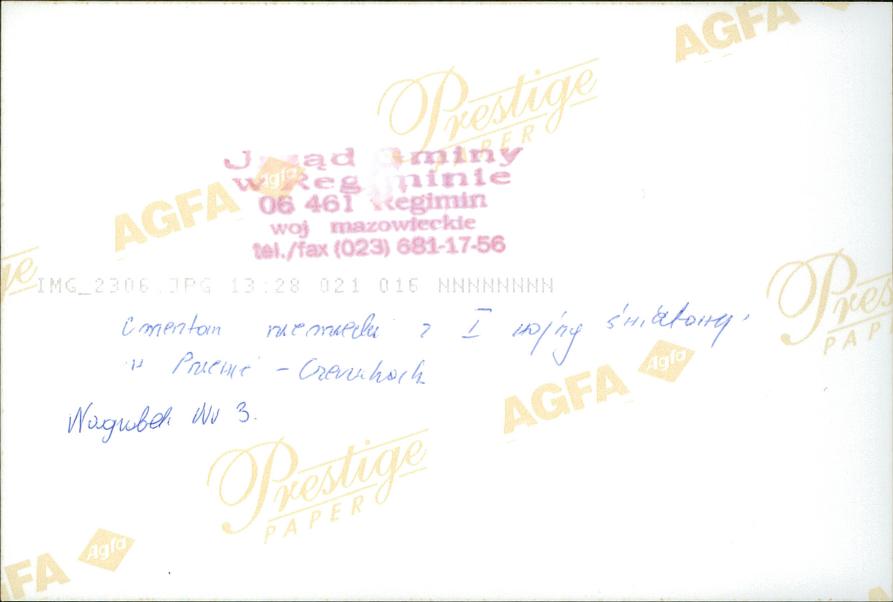 AGFA
Prestige
PAPER
Urząd Gminy
w Regiminie
06 461 Regimin
woj mazowieckie
tel./fax (023) 681-17-56
AGFA
Agfa
IMG_2306.JPG 13:28 021 016 NNNNNNNN
Prestige
PAPER
Cmentarz niemiecki z I wojny światowej
w
Nagrobek Nr 3.
AGFA
Agfa
Prestige
PAPER
AGFA
Agfa